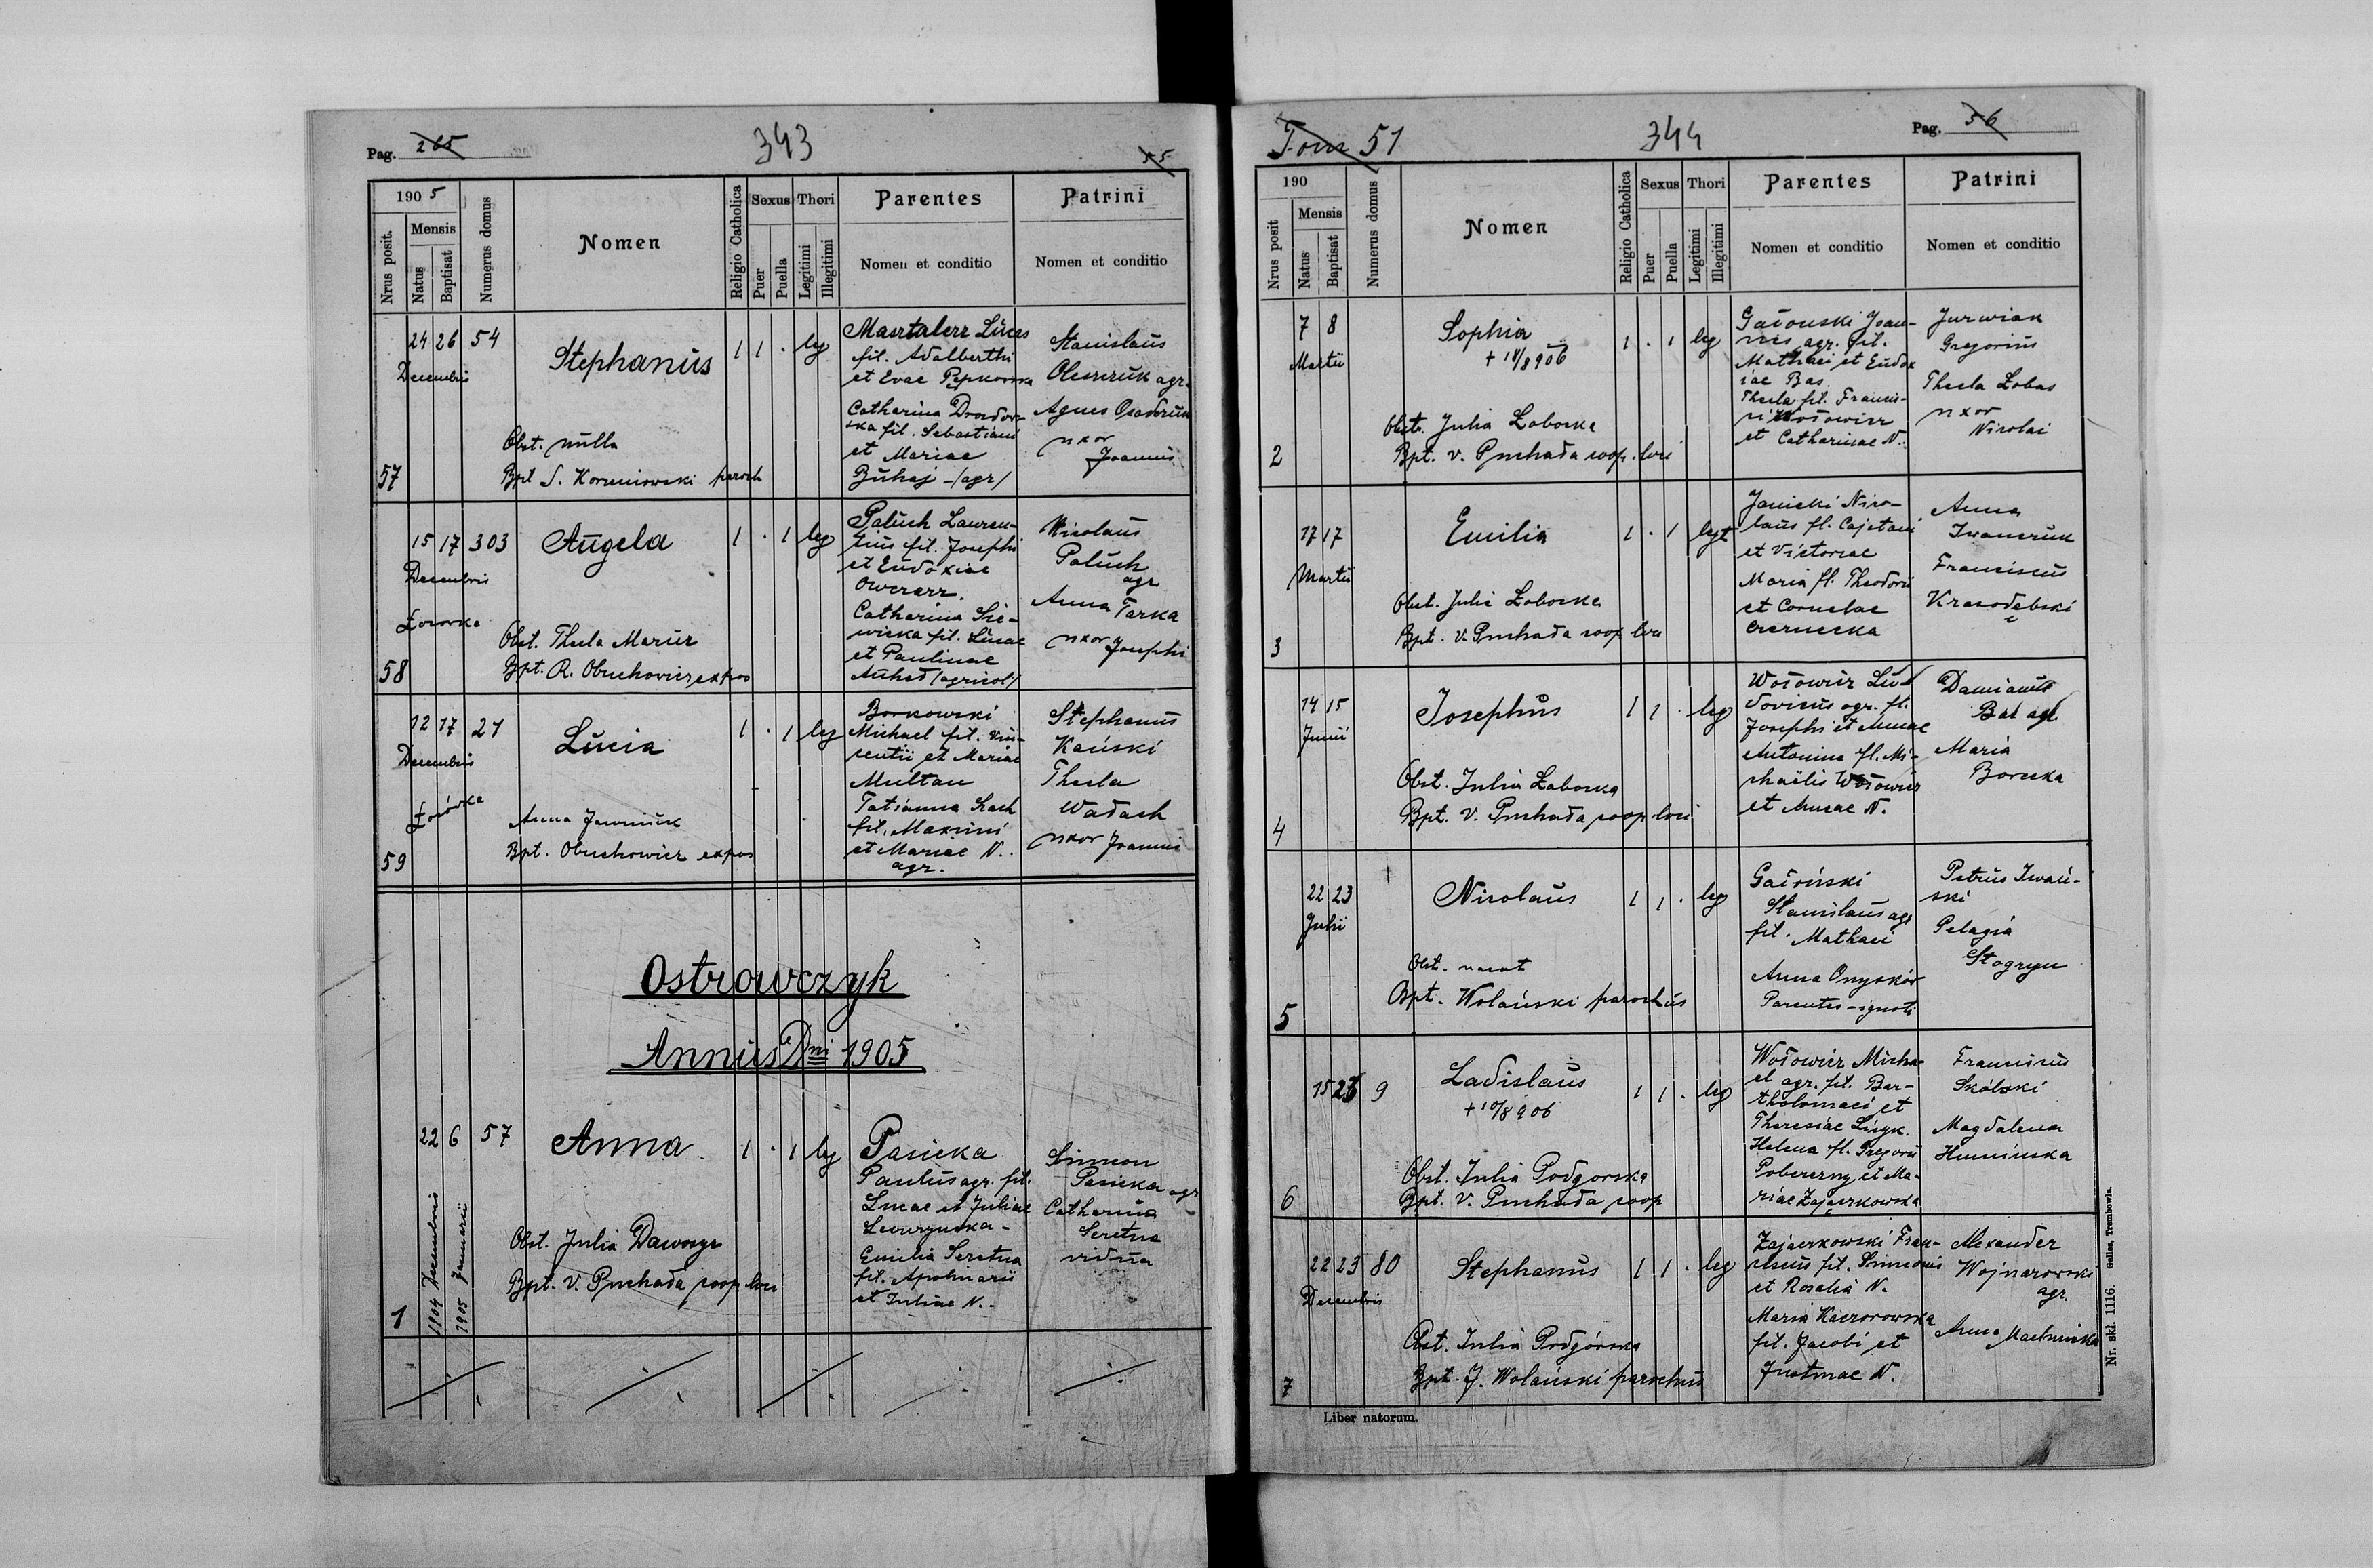 Pag. 265
343
55
1905
Nrus posit.
Mensis
Natus
Baptisat
Numerus domus
Nomen
Religio Catholica
Sexus
Puer
Puella
Thori
Legitimi
Illegitimi
Parentes
Nomen et conditio
Patrini
Nomen et conditio
57
24 26 54
Decembris
Stephanus
1 1 . leg
Obst. nulla
Bpt S. Korzeniowski paroch
Lucas
fil. Adalberthi
et Evae
Catharina
fil. Sebastiani
et Mariae
Buhaj -/agr/
Stanislaus
agr.
Agnes
uxor
Joannis
58
15 17 303
Decembris
Angela
1 . 1 leg
Obst. Thecla Mazur
Bpt. R. Obuchowicz expos
Paluch Lauren-
tius fil. Josephi
et Eudoxiae
Owczarz.
Catharina Sie-
wicka fil. Lucae
et Paulinae
/agricol/
Nicolaus
Paluch
agr
Anna Tarka
uxor Josephi
59
12 17 21
Decembris
Lucia
1 . 1 leg
Anna
Bpt. Obuchowicz expos
Borkowski
Michael fil. Vin-
centii et Mariae
Multan
Tatianna
fil. Maximi
et Mariae N.
agr.
Stephanus
Kański
Thecla
Wadach
uxor Joannis
Ostrowczyk
Annus Dni 1905
1
22 6 57
1904 Decembris
1905 Januarii
Anna
1 . 1 leg
Obst. Julia
Bpt. V. Puchała coop. loci
Pasieka
Paulus agr. fil.
Lucae et Juliae
Emilia Seretna
fil. Apolinarii
et Juliae N.
Simeon
Pasieka agr
Catharina
Seretna
vidua
Tom 51
344
Pag. 56
190
Nrus posit
Mensis
Natus
Baptisat
Numerus domus
Nomen
Religio Catholica
Sexus
Puer
Puella
Thori
Legitimi
Illegitimi
Parentes
Nomen et conditio
Patrini
Nomen et conditio
2
7 8
Martii
Sophia
1 . 1 leg
Obst. Julia Zaborska
Bpt. V. Puchała coop. loci
Joan-
nes agr. fil.
Mathaei et Eudox
iae Bas
Thecla fil. Francis-
ci Wołowicz
et Catharinae N.
Gregorius
Thecla
uxor
Nicolai
3
17 17
Martii
Emilia
1 . 1 legt
Obst. Julia Zaborska
Bpt. V. Puchała coop loci
Janicki Nico-
laus fl. Cajetani
et Victoriae
Maria fl. Theodori
et Corneliae
Czernecka
Anna
Iwańczuk
Franciscus
Krasodębski
4
14 15
Junii
Josephus
1 1 . leg
Obst. Julia Zaborska
Bpt. V. Puchała coop. loci
Wołowicz Lu-
dovicus agr. fl.
Josephi et Annae
Antonina fl. Mi-
chaëlis Wołowicz
et Annae N.
Damianus
Bas agr.
Maria
Borecka
5
22 23
Julii
Nicolaus
1 1 . leg
Obst. vacat
Bpt. Wolański parochus
Stanislaus agr
fil. Mathaei
Anna Onyśków
Parentes - ignoti
Petrus Iwań-
ski
Pelagia
Stogryn
6
15 23 9
Ladislaus
+ 10/8 906
1 1 . leg
Obst. Julia Podgorska
Bpt. V. Puchała coop
Wołowicz Micha-
el agr. fil. Bar-
tholomaei et
Theresiae
Helena fl. Gregorii
Pobereżny et Ma-
riae Zajączkowska
Franciscus
Skólski
Magdalena
7
22 23 80
Decembris
Stephanus
1 1 . leg
Obst. Julia Podgórska
Bpt. J. Wolański parochus
Zajączkowski Fran-
ciscus fil. Simeonis
et Rosalia N.
Maria Kaczorowska
fil. Jacobi et
Justinae N.
Alexander
Wojnarowski
agr.
Anna Machnicka
Liber natorum.
Nr. skł. 1116. Gelles, Trembowla.